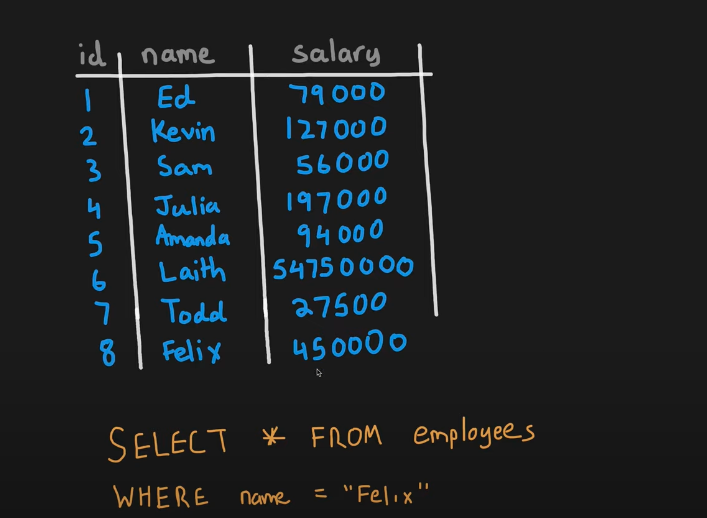 id name salary
1 Ed 79000
2 Kevin 127000
3 Sam 56000
4 Julia 197000
5 Amanda 94000
6 Laith 54750000
7 Todd 27500
8 Felix 450000
SELECT * FROM employees
WHERE name = "Felix"